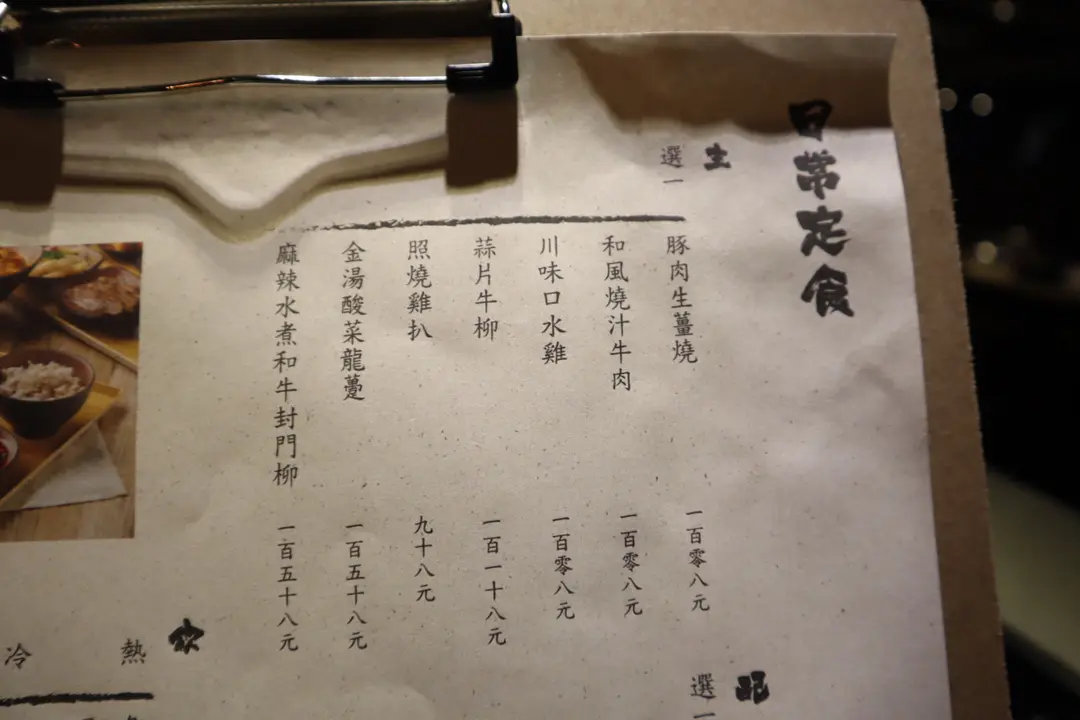 日常定食
主
選一
豚肉生薑燒
一百零八元
和風燒汁牛肉
一百零八元
川味口水雞
一百零八元
蒜片牛柳
一百一十八元
照燒雞扒
九十八元
金湯酸菜龍躉
一百五十八元
麻辣水煮和牛封門柳
一百五十八元
配
選一
飲
熱
冷